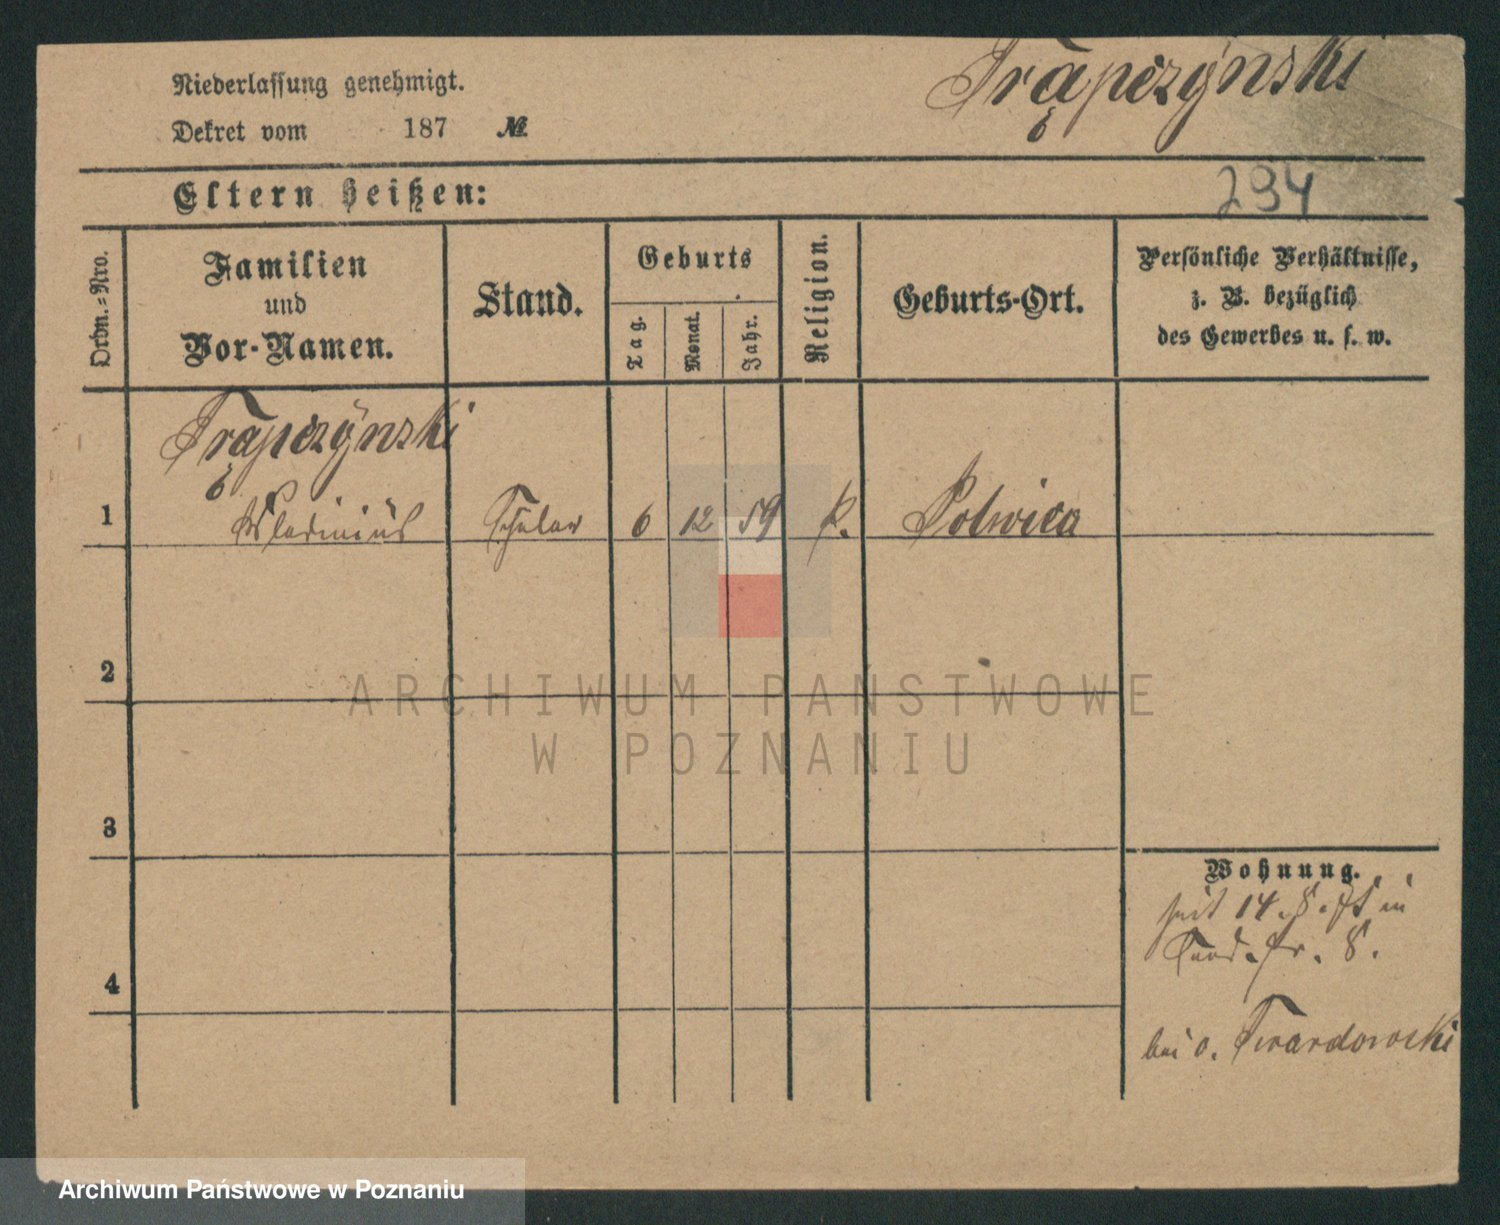 Trąpczynski
Niederlassung genehmigt.
Dekret vom 187 №
Eltern heißen:
294
Ordn.=Nro.
Familien
und
Vor-Namen.
Stand.
Geburts
Tag.
Monat.
Jahr.
Religion.
Geburts-Ort.
Persönliche Verhältnisse,
z. B. bezüglich
des Gewerbes u. s. w.
Trąpczynski
1 Schüler 6 12 59 k. Polwica
2
3
4
Wohnung.
seit 14. 8. in
8.
bei v. Twardowski
ARCHIWUM PAŃSTWOWE
W POZNANIU
Archiwum Państwowe w Poznaniu